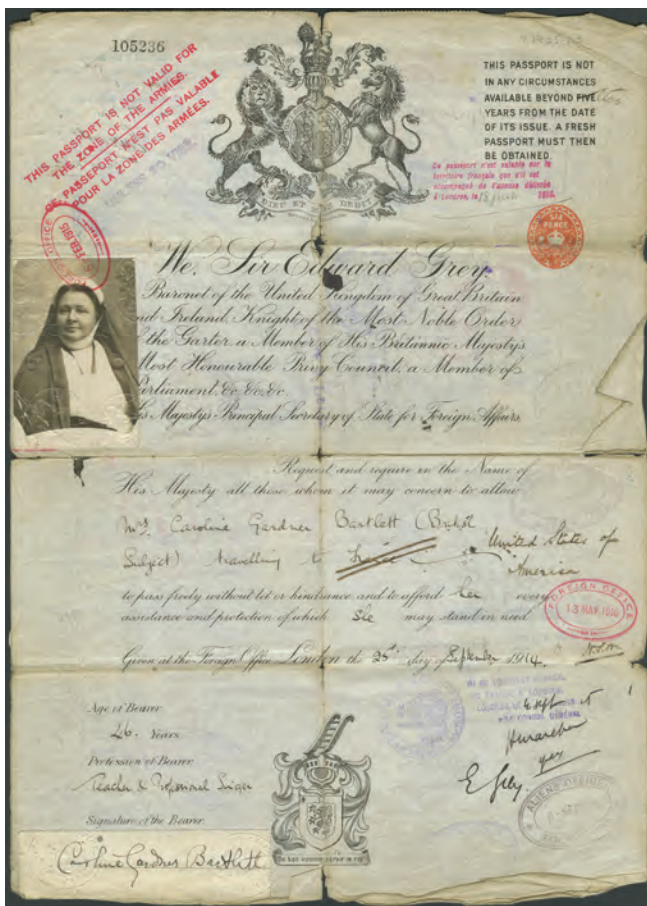 105236
THIS PASSPORT IS NOT VALID FOR
THE ZONE OF THE ARMIES.
CE PASSEPORT N'EST PAS VALABLE
POUR LA ZONE DES ARMÉES.
THIS PASSPORT IS NOT
IN ANY CIRCUMSTANCES
AVAILABLE BEYOND FIVE
YEARS FROM THE DATE
OF ITS ISSUE. A FRESH
PASSPORT MUST THEN
BE OBTAINED.
Ce passeport n'est valable sur le
territoire français que s'il est
accompagné de
à Londres, le
SIX
PENCE
DIEU ET MON DROIT
FEB. 1915
We, Sir Edward Grey,
Baronet of the United Kingdom of Great Britain
and Ireland, Knight of the Most Noble Order
of the Garter, a Member of His Britannic Majesty's
Most Honourable Privy Council, a Member of
Parliament, &c. &c. &c.
His Majesty's Principal Secretary of State for Foreign Affairs.
Request and require in the Name of
His Majesty all those whom it may concern to allow
Mrs. Caroline Gardner Bartlett (British
Subject) travelling to France
United States of
America
to pass freely without let or hindrance and to afford her every
assistance and protection of which she may stand in need.
FOREIGN OFFICE
13 MAY 1916
Given at the Foreign Office London the 25th day of September 1914.
Age of Bearer
46. Years
Profession of Bearer
Teacher & Professional Singer
Signature of the Bearer.
Caroline Gardner Bartlett
CONSUL GÉNÉRAL
E Grey.
ALIENS OFFICER